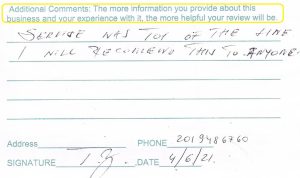 Additional Comments: The more information you provide about this
business and your experience with it, the more helpful your review will be.
SERVISE WAS TOP OF THE LINE
I WILL RECOMEND THIS TO ANYONE.
Address PHONE 2019486760
SIGNATURE DATE 4/6/21